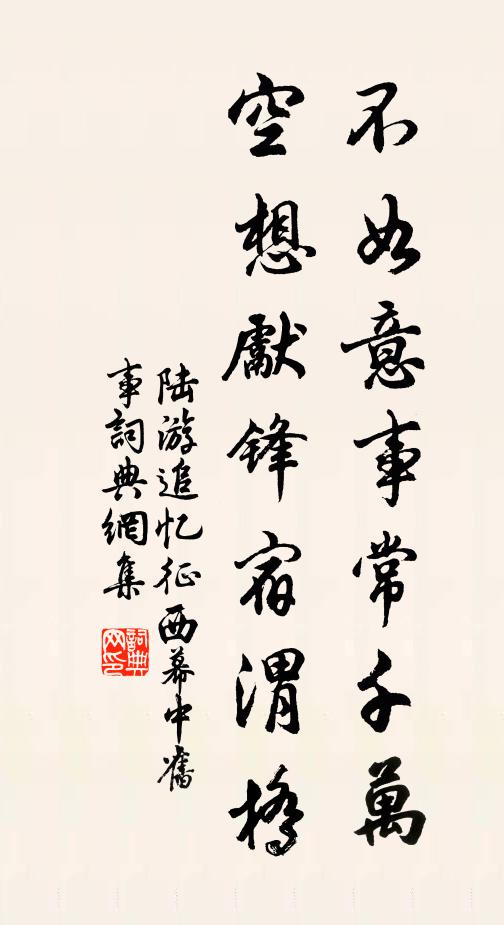 不如意事常千萬
空想獻鋒宿渭橋
陆游追忆征西幕中舊
事詞典網集
詞典网印